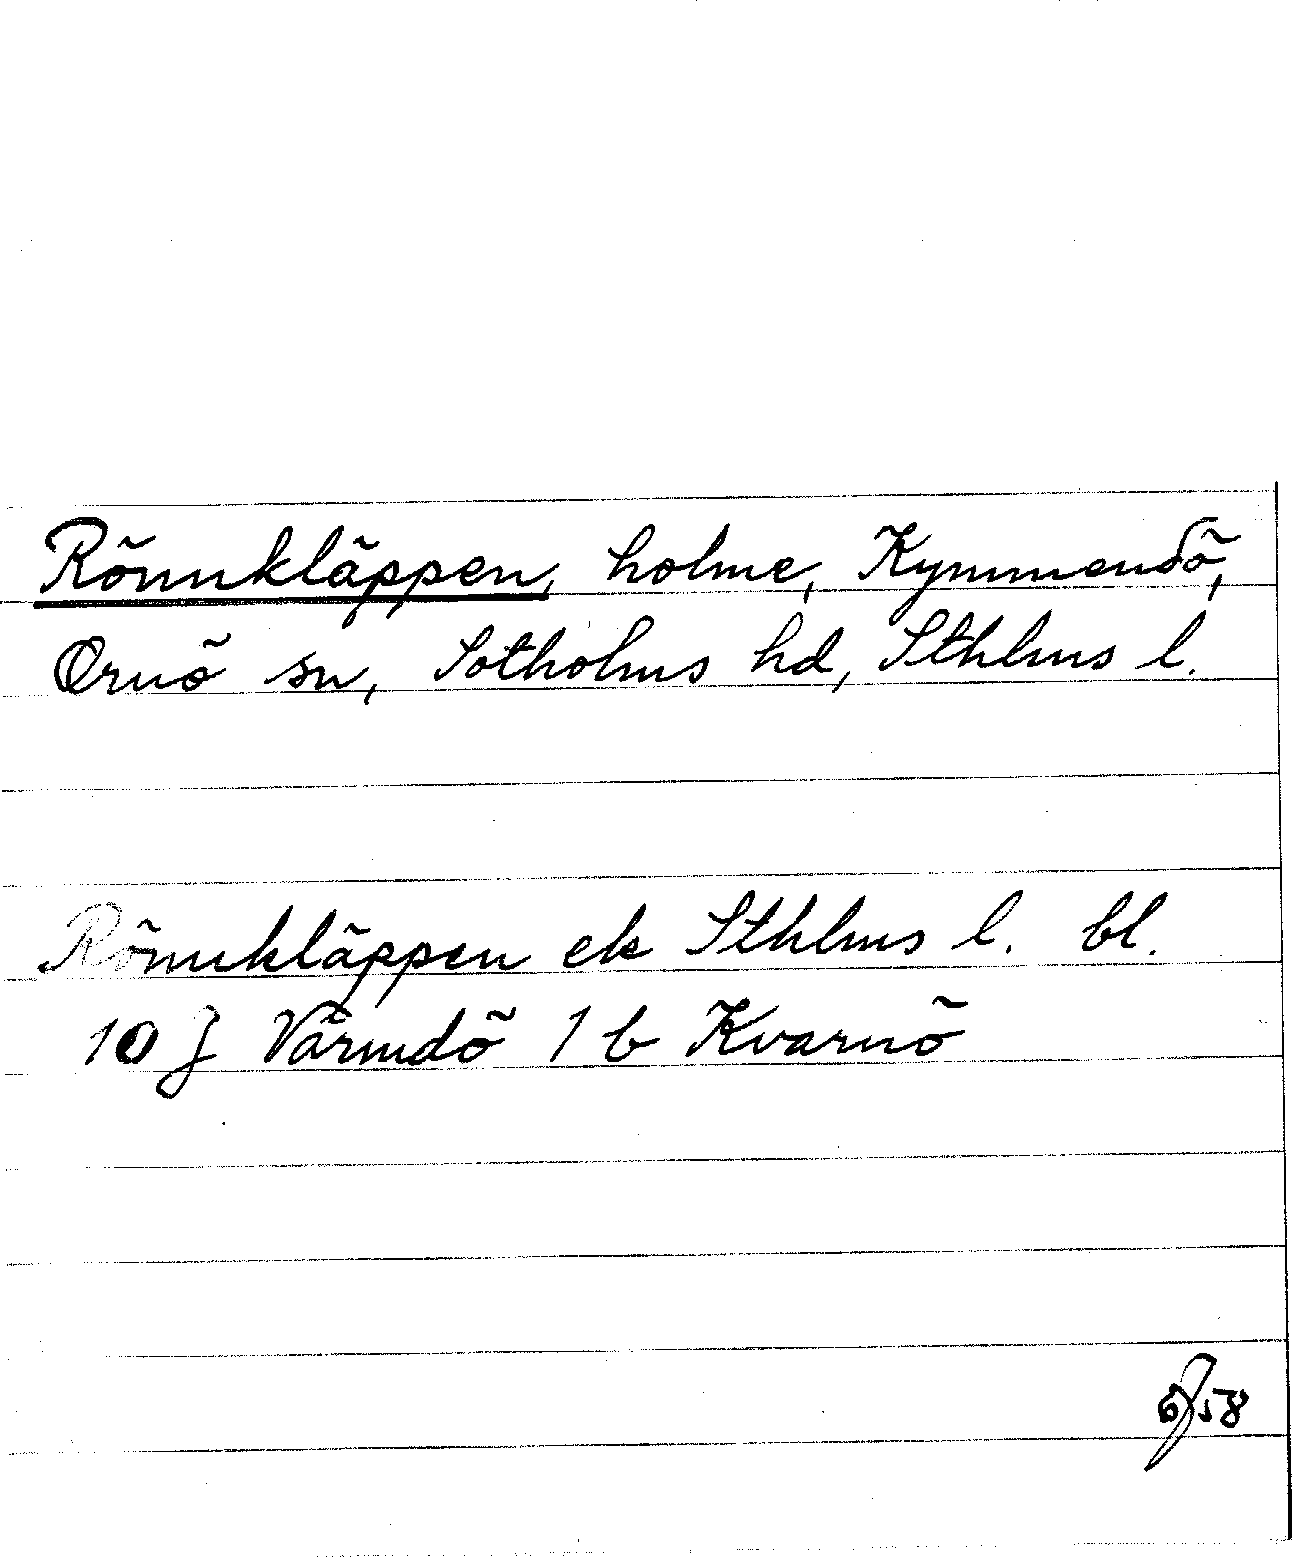 Rönnkläppen, holme, Kymmendö,
Ornö sn, Sotholms hd, Sthlms l.
Rönnkläppen ek Sthlms l. bl.
10 J Värmdö 1 b Kvarnö